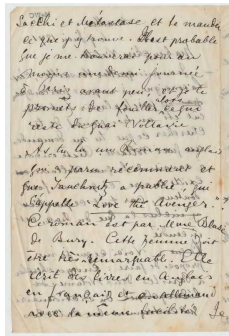 Sacchi et Métaclase et te mander
ce que j'y trouve. Il est probable
que je me trouverai pour un
moins une demi journée
à Paris avant peu, alors je te
promets de fouiller
cette du Quai Voltaire
As-tu lu un Roman anglais
qui a paru récemment et
que Tauchnitz a publié, qui
s'appelle "Love the Avenger." ?
Ce roman est par Mme Blaze
de Bury. Cette femme doit
être très remarquable. Elle
écrit des livres en Anglais
en français et en allemand
avec la même facilité
Le